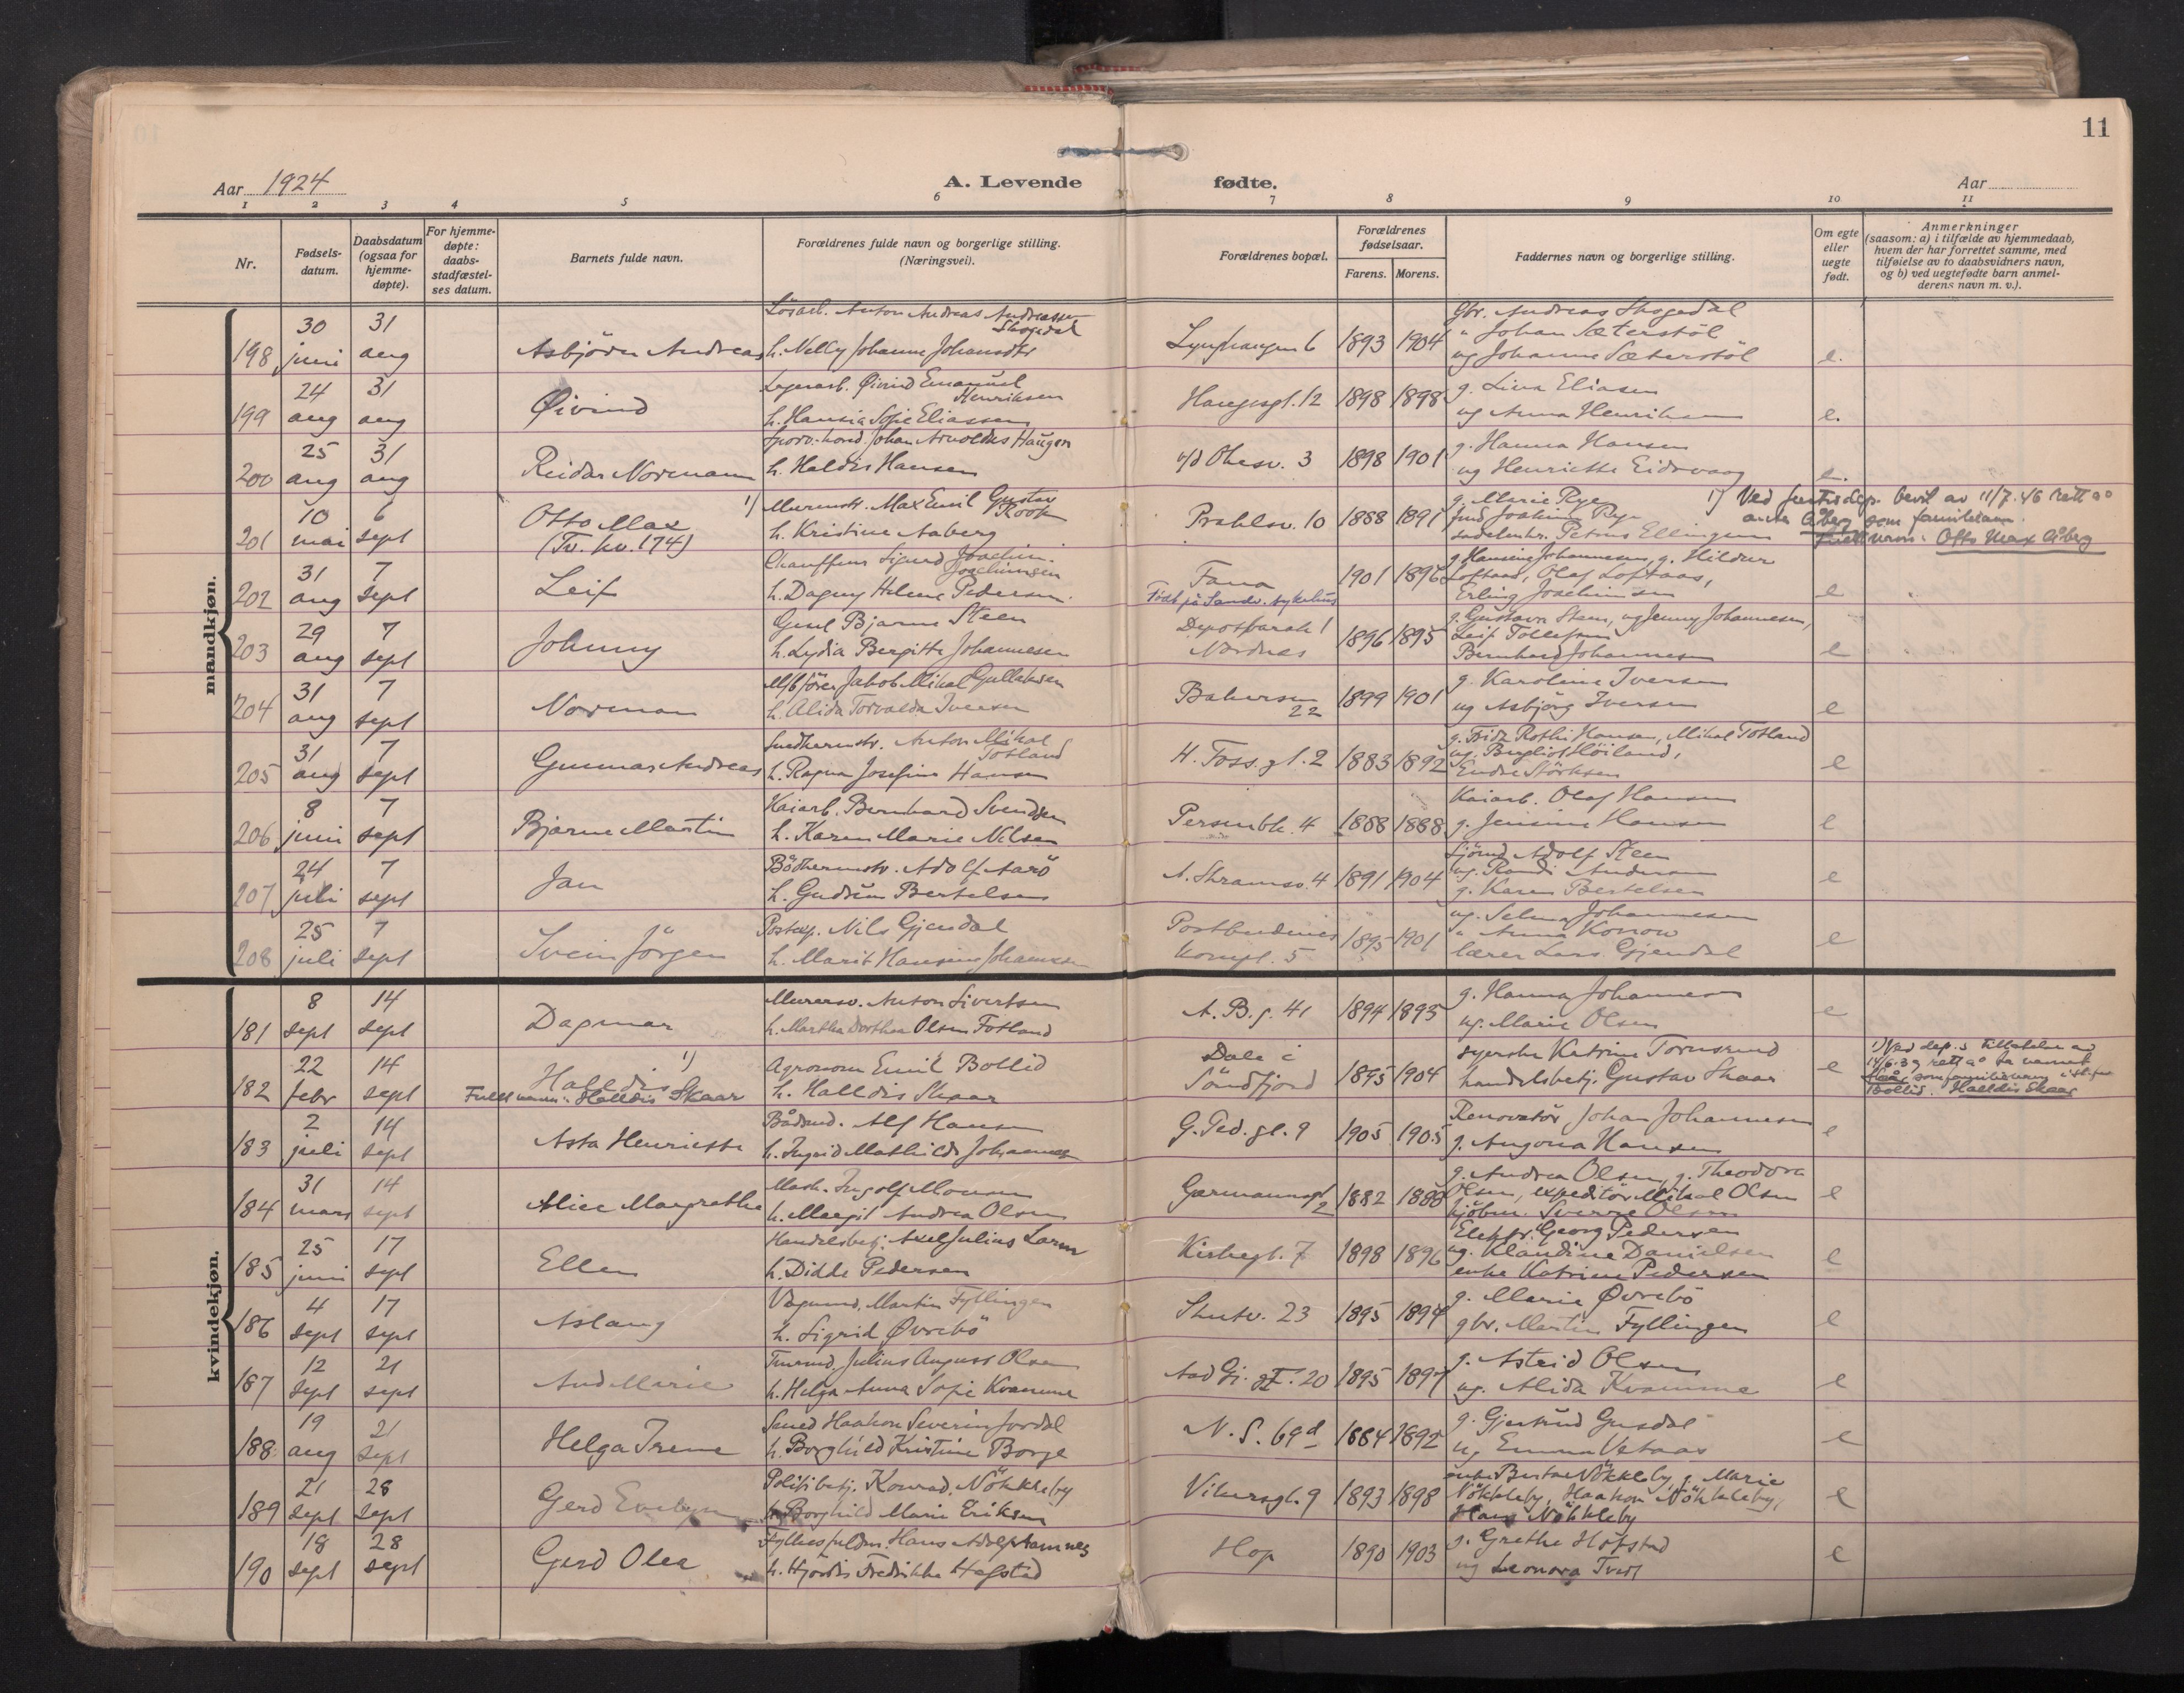 11
Aar 1924
A. Levende fødte.
Aar
1 2 3 4 5 6 7 8 9 10 11
Nr.
Fødsels-
datum.
Daabsdatum
(ogsaa for
hjemme-
døpte).
For hjemme-
døpte:
daabs-
stadfæstel-
ses datum.
Barnets fulde navn.
Forældrenes fulde navn og borgerlige stilling.
(Næringsvei).
Forældrenes bopæl.
Forældrenes
fødselsaar.
Farens. Morens.
Faddernes navn og borgerlige stilling.
Om egte
eller
uegte
født.
Anmerkninger
(saasom: a) i tilfælde av hjemmedaab,
hvem der har forrettet samme, med
tilføielse av to daabsvidners navn,
og b) ved uegtefødte barn anmel-
derens navn m. v.).
mandkjøn.
198 30 juni 31 aug Asbjörn Andreas
Løsarb. Anton Andreas Andreassen
Skogedal
h. Nelly Johanne Johansdtr
Lynghaugen 6 1893 1904
Gbr. Andreas Skogedal
" Johan Sæterstöl
ug Johanne Sæterstöl e.
199 24 aug 31 aug Øivind
Lagerarb. Øivind Emanuel
Henriksen
h. Hansia Sofie Eliassen
Haugesgt. 12 1898 1898
g. Lina Eliasen
ug Anna Henriksen e.
200 25 aug 31 aug Reidar Norman
Sporv. kond. Johan Arnoldus Haugen
h. Haldis Hansen
3 1898 1901
g. Hanna Hansen
ug Henriette Eidsvaag e.
201 10 mai 6 sept Otto Max 1)
(Tv. kv. 174)
Murmstr. Max Emil Gustav
Kook
h. Kristine Aaberg
Prahlsv. 10 1888 1891
g. Marie Rye
Joakim Rye
sadelmkr. Petrus Ellingsen
1) Ved justisdep. bevil av 11/7.46 rett ao
anta Åberg som familienavn.
Fullt navn: Otto Max Åberg
202 31 aug 7 sept Leif
Chauffeur Sigurd Joachim
Joachimsen
h. Dagny Helene Pedersen.
Fana
Født på Sandv. sykehus
1901 1896
g. Hansine Johannesen, g. Hildur
Loftaas, Olaf Loftaas,
Erling Joachimsen e
203 29 aug 7 sept Johnny
Bjarne Steen
h. Lydia Bergitte Johannesen
Depotbarak 1
Nordnes
1896 1895
g. Gustava Steen, ug Jenny Johannesen,
Leif Tollefsen
Bernhard Johannesen e
204 31 aug 7 sept Norman
M/b fører Jakob Mikal Gullaksen
h. Alida Torvalda Iversen
22 1899 1901
g. Karoline Iversen
ug Asbjørg Iversen e
205 31 aug 7 sept Gunnar Andreas
Smedkermstr. Anton Mikal
Totland
h. Ragna Josefine Hansen
H. Foss. gt. 2 1883 1892
g. Fritz Rothi Hansen, Mikal Totland
ug. Bergliot Höiland,
Endre Störksen e
206 8 juni 7 sept Bjarne Martin
Kaiarb. Bernhard Svendsen
h. Karen Marie Nilsen
Persenbk. 4 1888 1888
Kaiarb. Olaf Hansen
g. Jensine Hansen e
207 24 juli 7 sept Jan
Bödkermstr. Adolf Aarö
h. Gudrun Bertelsen
A. Skramsv. 4 1891 1904
Sjömd Adolf Steen
ug. Randi Andersen
g. Karen Bertelsen e
208 25 juli 7 sept Svein Jörgen
Posteksp. Nils Gjendal
h. Marit Hansine Johannessen
Postbudenes
kompl. 5
1895 1901
ug. Selma Johannesen
" Anna Konow
lærer Lars Gjendal e
kvindekjøn.
181 8 sept 14 sept Dagmar
Murersv. Anton Sivertsen
h. Martha Dorthea Olsen Totland
A. B. g. 41 1894 1895
g. Hanna Johannesen
ug. Marie Olsen e
182 22 febr 14 sept Halldis 1)
Fullt navn: Halldis Skaar
Agronom Emil Bollid
h. Halldis Skaar
Dale i
Söndfjord
1895 1904
syerske Katrine Tornsund
handelsbetj. Gustav Skaar e
1) Ved dep.s tillatelse av
14/6.39 rett ao ta navnet
Skaar som familienavn istf
Bollid. Halldis Skaar
183 2 juli 14 sept Asta Henriette
Bådsmd. Alf Hansen
h. Ingrid Mathilde Johannesen
G. Ped. gt. 9 1905 1905
Renovatör Johan Johannesen
g. Angona Hansen e
184 31 mars 14 sept Alice Margrethe
Mask. Ingolf Monsen
h. Margit Andrea Olsen
Garmannsgt 2 1882 1888
g. Andrea Olsen, g. Theodora
Olsen, expeditör Mikal Olsen
kjöbm. Sverre Olsen e
185 25 juni 17 sept Ellen
Handelsbetj. Axel Julius Larsen
h. Didde Pedersen
Kirkegt. 7 1898 1896
Elektr. Georg Pedersen
ug. Klaudine Danielsen
enke Katrine Pedersen e
186 4 sept 17 sept Aslaug
Vognmd. Martin Fyllingen
h. Sigrid Øvrebö
Skutv. 23 1895 1894
g. Marie Øvrebö
gbr. Martin Fyllingen e
187 12 sept 21 sept Aud Marie
Julius August Olsen
h. Helga Anna Sofie Kvamme
20 1895 1897
g. Astrid Olsen
ug. Alida Kvamme e
188 19 aug 21 sept Helga Irene
Smed Haakon Severin Jordal
h. Borghild Kristine Borge
N. S. 69d 1884 1892
g. Gjertrud Gusdal
ug Emma Vetaas e
189 21 sept 28 sept Gerd Evelyn
Politibetj. Konrad Nökkleby
h. Borghild Marie Eriksen
Vikersgt. 9 1893 1898
enke Bertha Nökkleby, g. Marie
Nökkleby, Haakon Nökkleby,
Hans Nökkleby e
190 18 sept 28 sept Gerd Olea
Hans Adolf Aamnes
h. Hjördis Fredrikke Hofstad
Hop 1890 1903
g. Grethe Hofstad
ug Leonora Tveit e